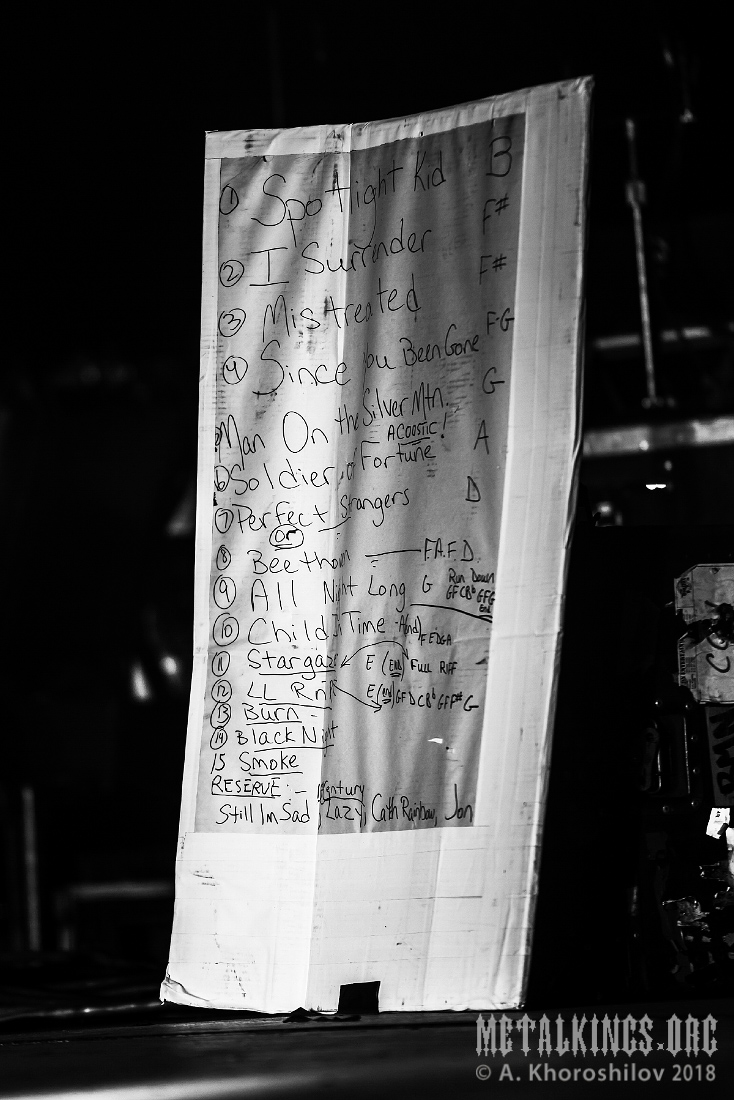 1 Spotlight Kid B
2 I Surrender F#
3 Mistreated F#
4 Since You Been Gone F-G
Man On the Silver Mtn. G
ACOUSTIC!
6 Soldier of Fortune A
7 Perfect Strangers D
or
8 Beethovn F.A.F.D.
9 All Night Long G Run Down
GFCBb GFG
End
10 Child In Time - And F EDGA
11 Stargazr E (END) FULL RIFF
12 LL RnR E (END) GFDCBb GFF# G
13 Burn -
14 Black Night
15 Smoke
RESERVE :- 16th Century
Still Im Sad, Lazy, Cath Rainbow, Jon
METALKINGS.ORG
© A. Khoroshilov 2018